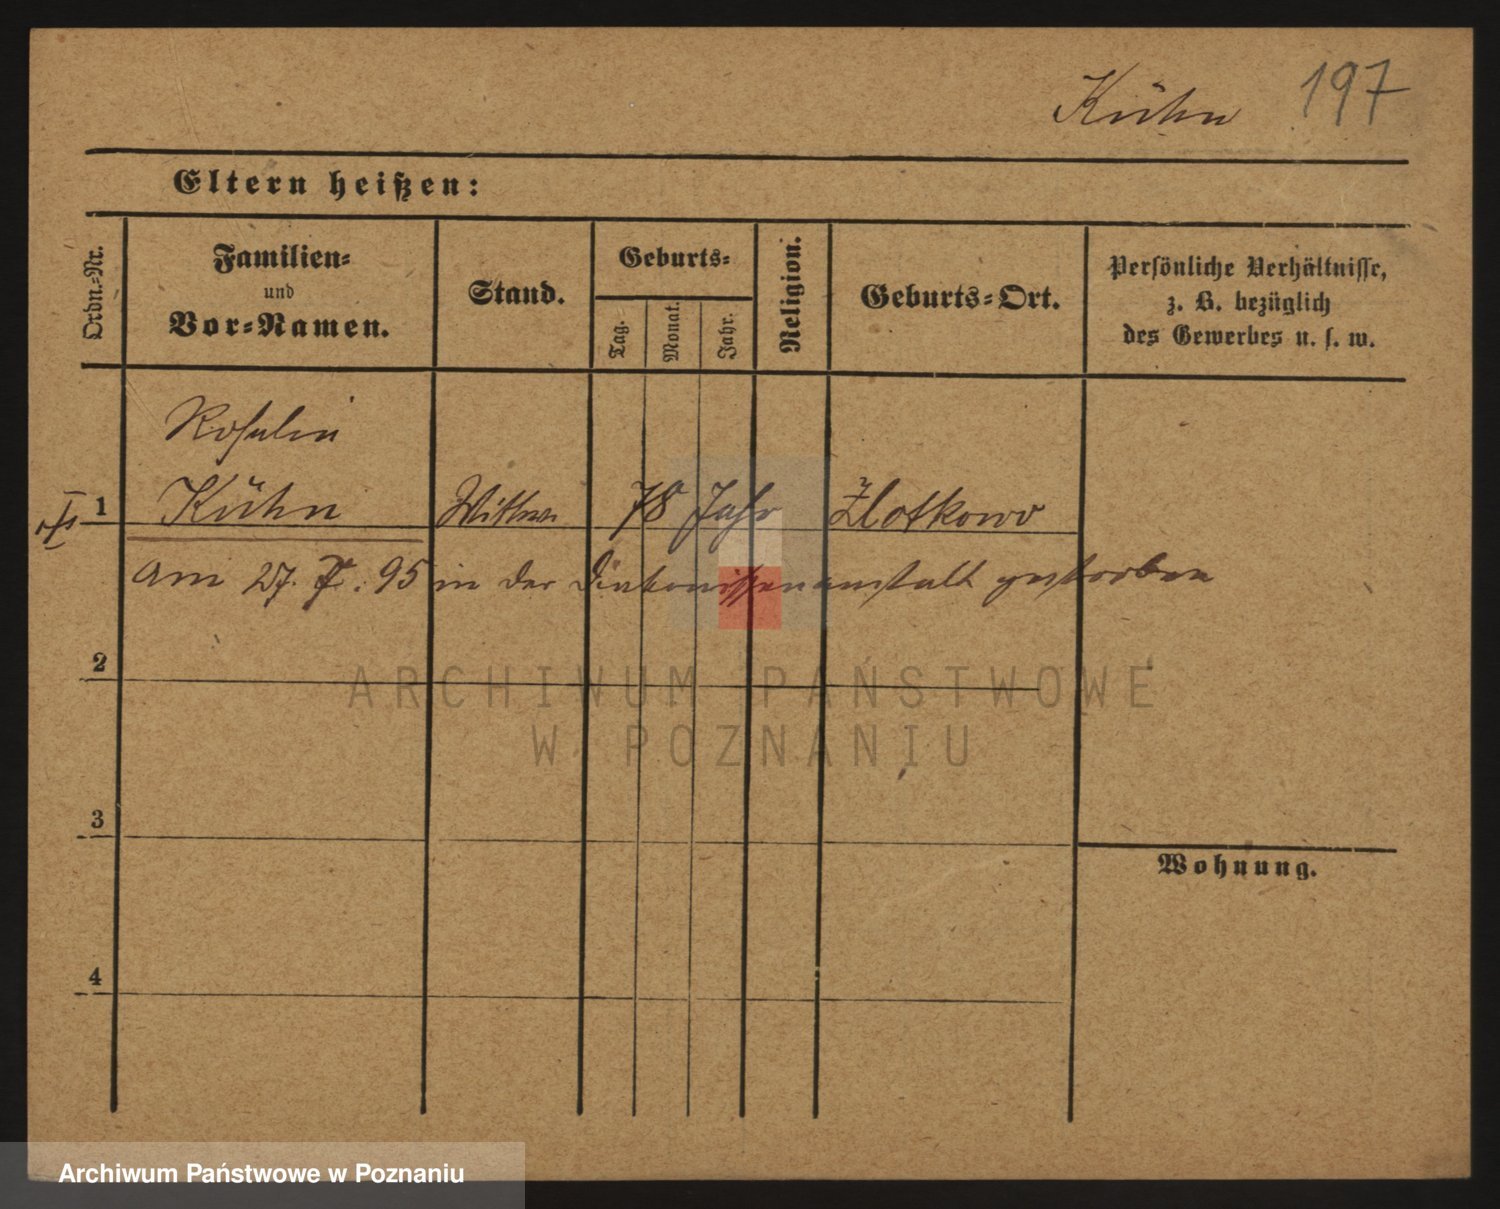 Kühn 197
Eltern heißen:
Ordn.-Nr.
Familien-
und
Vor-Namen.
Stand.
Geburts-
Tag.
Monat.
Jahr.
Religion.
Geburts-Ort.
Persönliche Verhältnisse,
z. B. bezüglich
des Gewerbes u. s. w.
Rosalie
1 Kühn Wittwe 78 Jahr Zlotkowo
am 27. 7. 95 in der Diakonissenanstalt gestorben
2
ARCHIWUM PAŃSTWOWE
W POZNANIU
3
Wohnung.
4
Archiwum Państwowe w Poznaniu